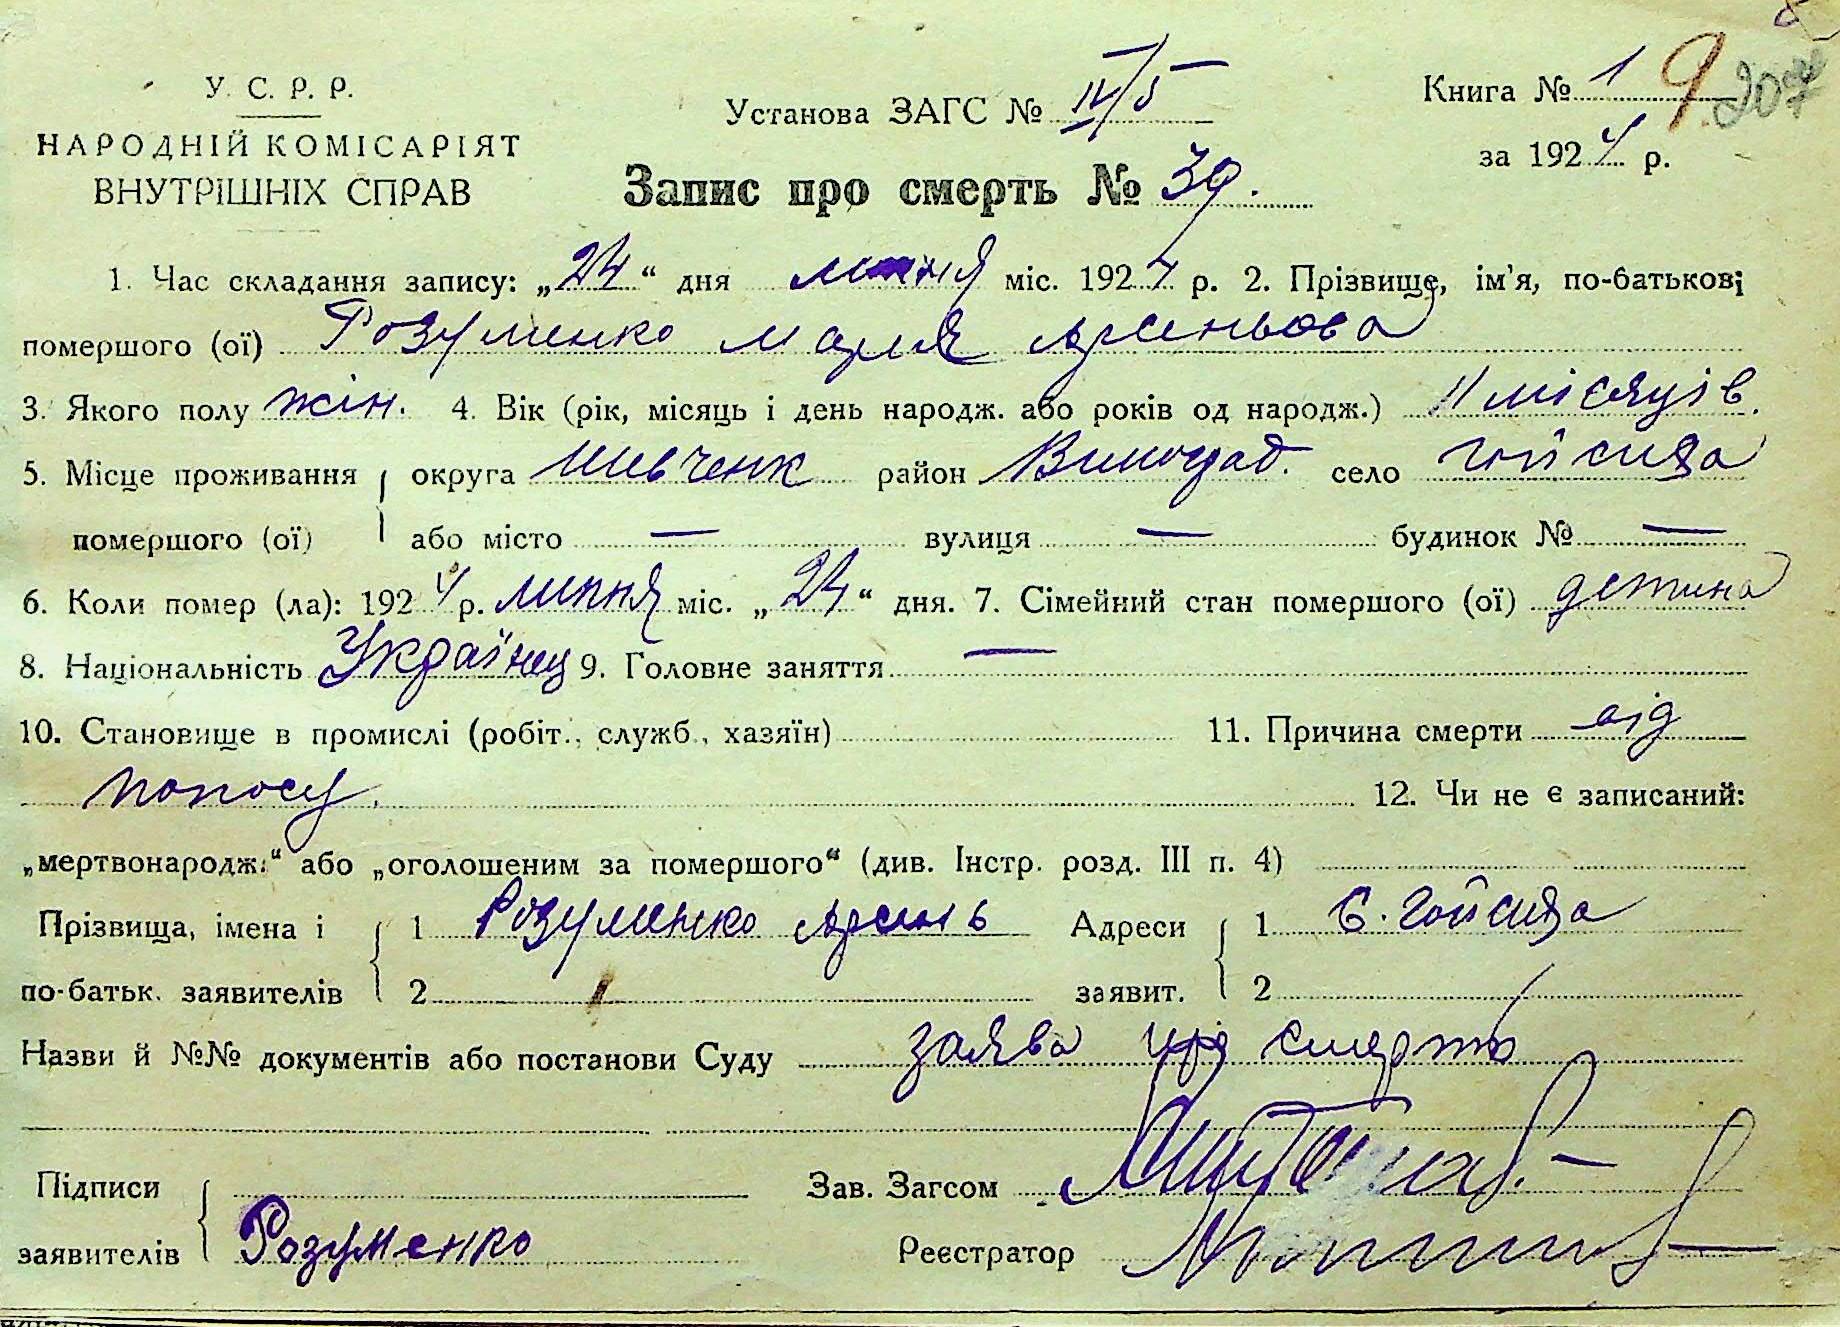 У. С. Р. Р.
НАРОДНІЙ КОМІСАРІЯТ
ВНУТРІШНІХ СПРАВ
Установа ЗАГС № IV/5
Книга № 1 9 207
за 1924 р.
Запис про смерть № 39.
1. Час складання запису: „24“ дня липня міс. 1924 р. 2. Прізвище, ім'я, по-батькові
помершого (ої) Розуменко Марія Арсеньова
3. Якого полу жін. 4. Вік (рік, місяць і день народж. або років од народж.) 11 місяців.
5. Місце проживання округа Шевченк район Виноград. село Гойсиха
помершого (ої) або місто — вулиця — будинок № —
6. Коли помер (ла): 1924 р. липня міс. „24“ дня. 7. Сімейний стан помершого (ої) детина
8. Національність Українец 9. Головне заняття —
10. Становище в промислі (робіт., служб., хазяїн) 11. Причина смерти від
поносу.
12. Чи не є записаний:
„мертвонародж.“ або „оголошеним за помершого“ (див. Інстр. розд. III п. 4)
Прізвища, імена і 1 Розуменко Арсень Адреси 1 С. Гойсиха
по-батьк. заявителів 2 заявит. 2
Назви й №№ документів або постанови Суду заява про смерть
Підписи Зав. Загсом
заявителів Розуменко Реєстратор